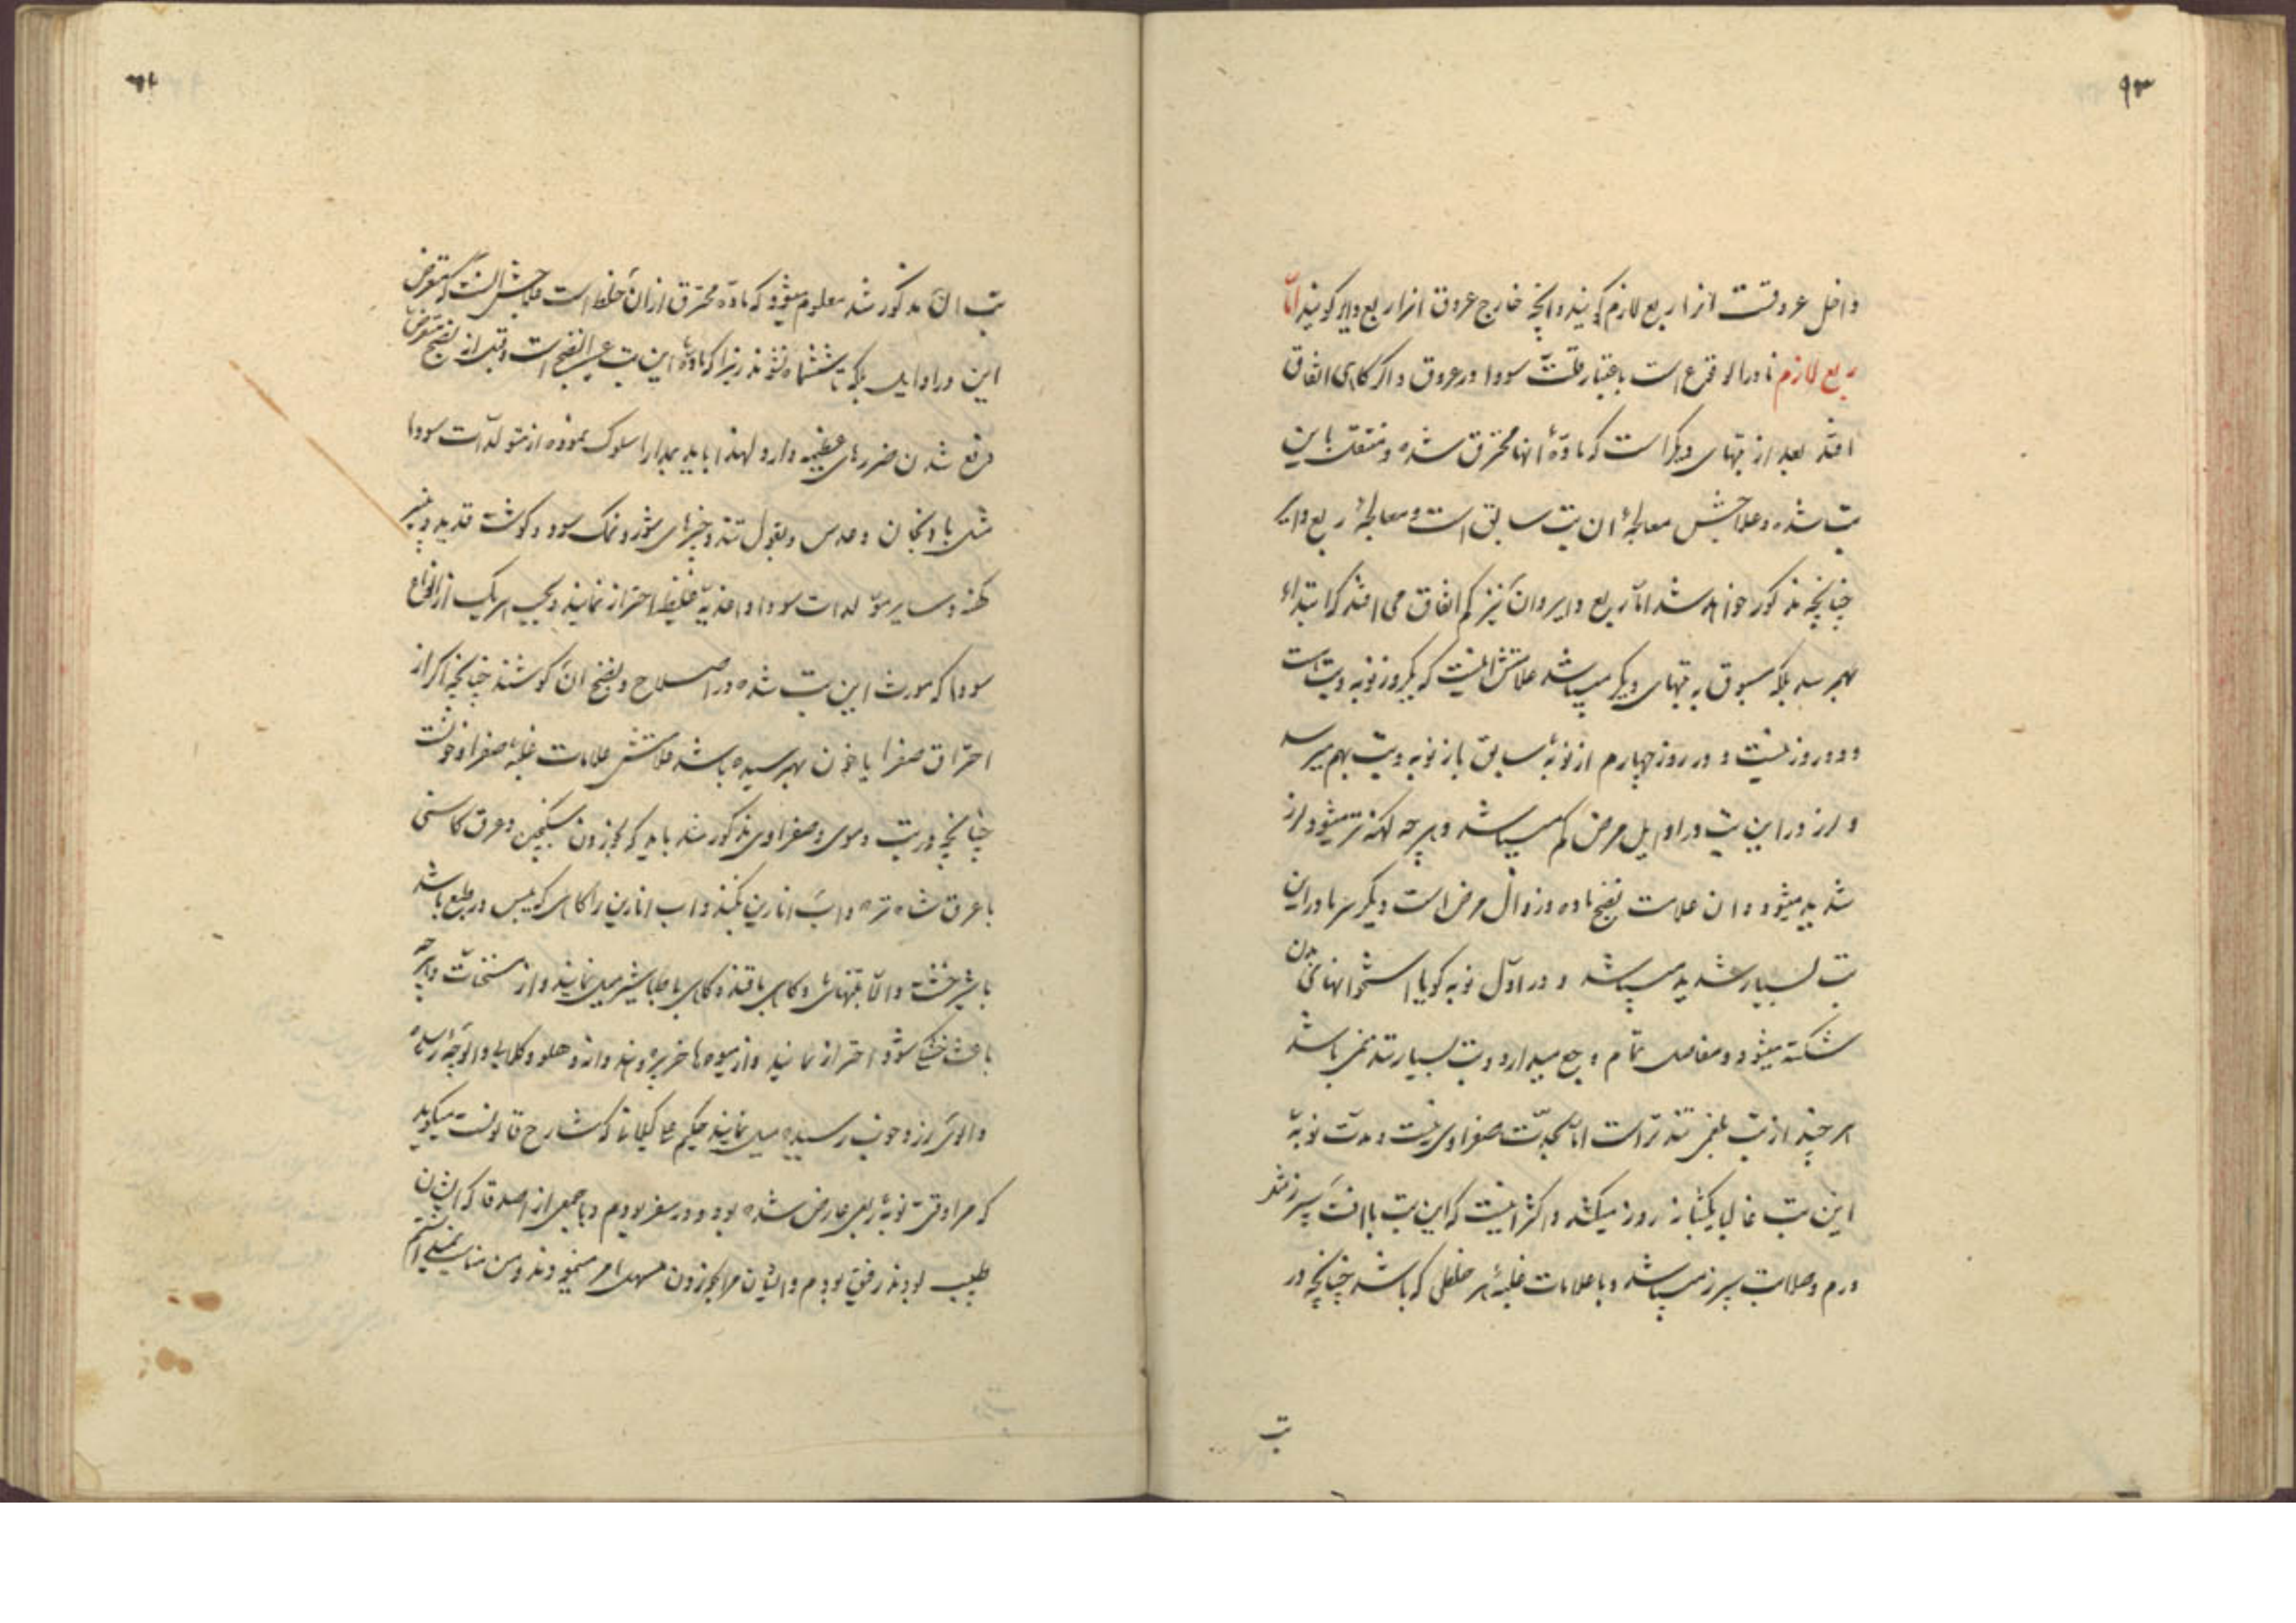 ۹۳
داخل عروقست انرا ربع لازم گویند و آنچه خارج عروق انرا ربع دایر گویند اما
ربع لازم نادر الوقوع است باعتبار قلت سودا در عروق و اگر گاهی اتفاق
افتد بعد از تبهای دیگر است که مادهٔ آنها محترق شده و منتقل باین
تب شده و علاجش معالجهٔ ان تب سابق است و معالجهٔ ربع دایر
چنانچه مذکور خواهد شد اما ربع دایر و ان نیز کم اتفاق می افتد که ابتداء
بهم رسد بلکه مسبوق به تبهای دیگر میباشد علامتش انیست که یکروز نوبه و تب است
و دو روز نیست و در روز چهارم از نوبهٔ سابق باز نوبه و تب بهم میرسد
و لرز در این تب در اوایل مرض کم میباشد و هر چه کهنه تر میشود لرز
شدید میشود و ان علامت نضج ماده و زوال مرض است و دیگر سرما در این
تب بسیار شدید میباشد و در اول نوبه گویا استخوانهای بدن
شکسته میشود و مفاصل تمام وجع میدارد و تب بسیار تند نمی باشد
هر چند از تب بلغمی تندتر است اما بحدت صفراوی نیست و مدت نوبهٔ
این تب غالبا یکشبانه روز میکشد و اکثر انیست که این تب با آفت سپرز مثل
ورم و صلابت سپرز میباشد و با علامات غلبهٔ هر خلطی که باشد چنانچه در
تب
تب ان مذکور شد معلوم میشود که ماده محترق از ان خلط است علاجش انست که متعرض
این در اوایل بلکه تا ششماه نشوند زیرا که مادهٔ این تب عسر النضج است و قبل از نضج متعرض
رفع شدن ضررهای عظیمه دارد لهذا باید بمدارا سلوک نموده از مولدات سودا
مثل بادنجان و عدس و بقول تند و چیزهای شور و نمک سود و گوشت قدید و پنیر
کهنه و سایر مولدات سودا و اغذیهٔ غلیظه احتراز نمایند و بحسب هریک از انواع
سودا که مورث این تب شده در اصلاح و نضج ان کوشند چنانچه اگر از
احتراق صفرا یا خون بهم رسیده باشد علامتش علامات غلبهٔ صفرا و خونست
چنانچه در تب دموی و صفراوی مذکور شد باید که بخوردن سکنجبین و عرق کاسنی
با عرق شاه تره و آب انارین بکنند و اب انارین را گاهی که یبس در طبع باشد
با شیرخشت و الا بتنهائی و گاهی با قند و گاهی با طباشیر میل نمایند و از مسخنات و هر چه
باعث خشکی شود احتراز نمایند و از میوه ها خربزه و هندوانه و هلو و گلابی و الوچهٔ رسیده
و الوی زرد خوب رسیده میل نمایند حکیم علی گیلانی که شارح قانونست میگوید
که مرا وقتی نوبهٔ ربعی عارض شده بود و در سفر بودم و با جمعی از اصدقا که ایشان
طبیب بودند رفیق بودم و ایشان مرا بخوردن مسهل امر مینمودند و من مناسب نمیدانستم